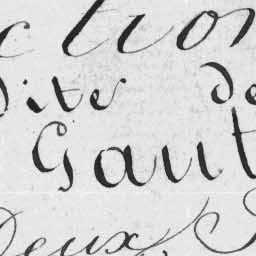 ction
dites de
Gaut
Deux